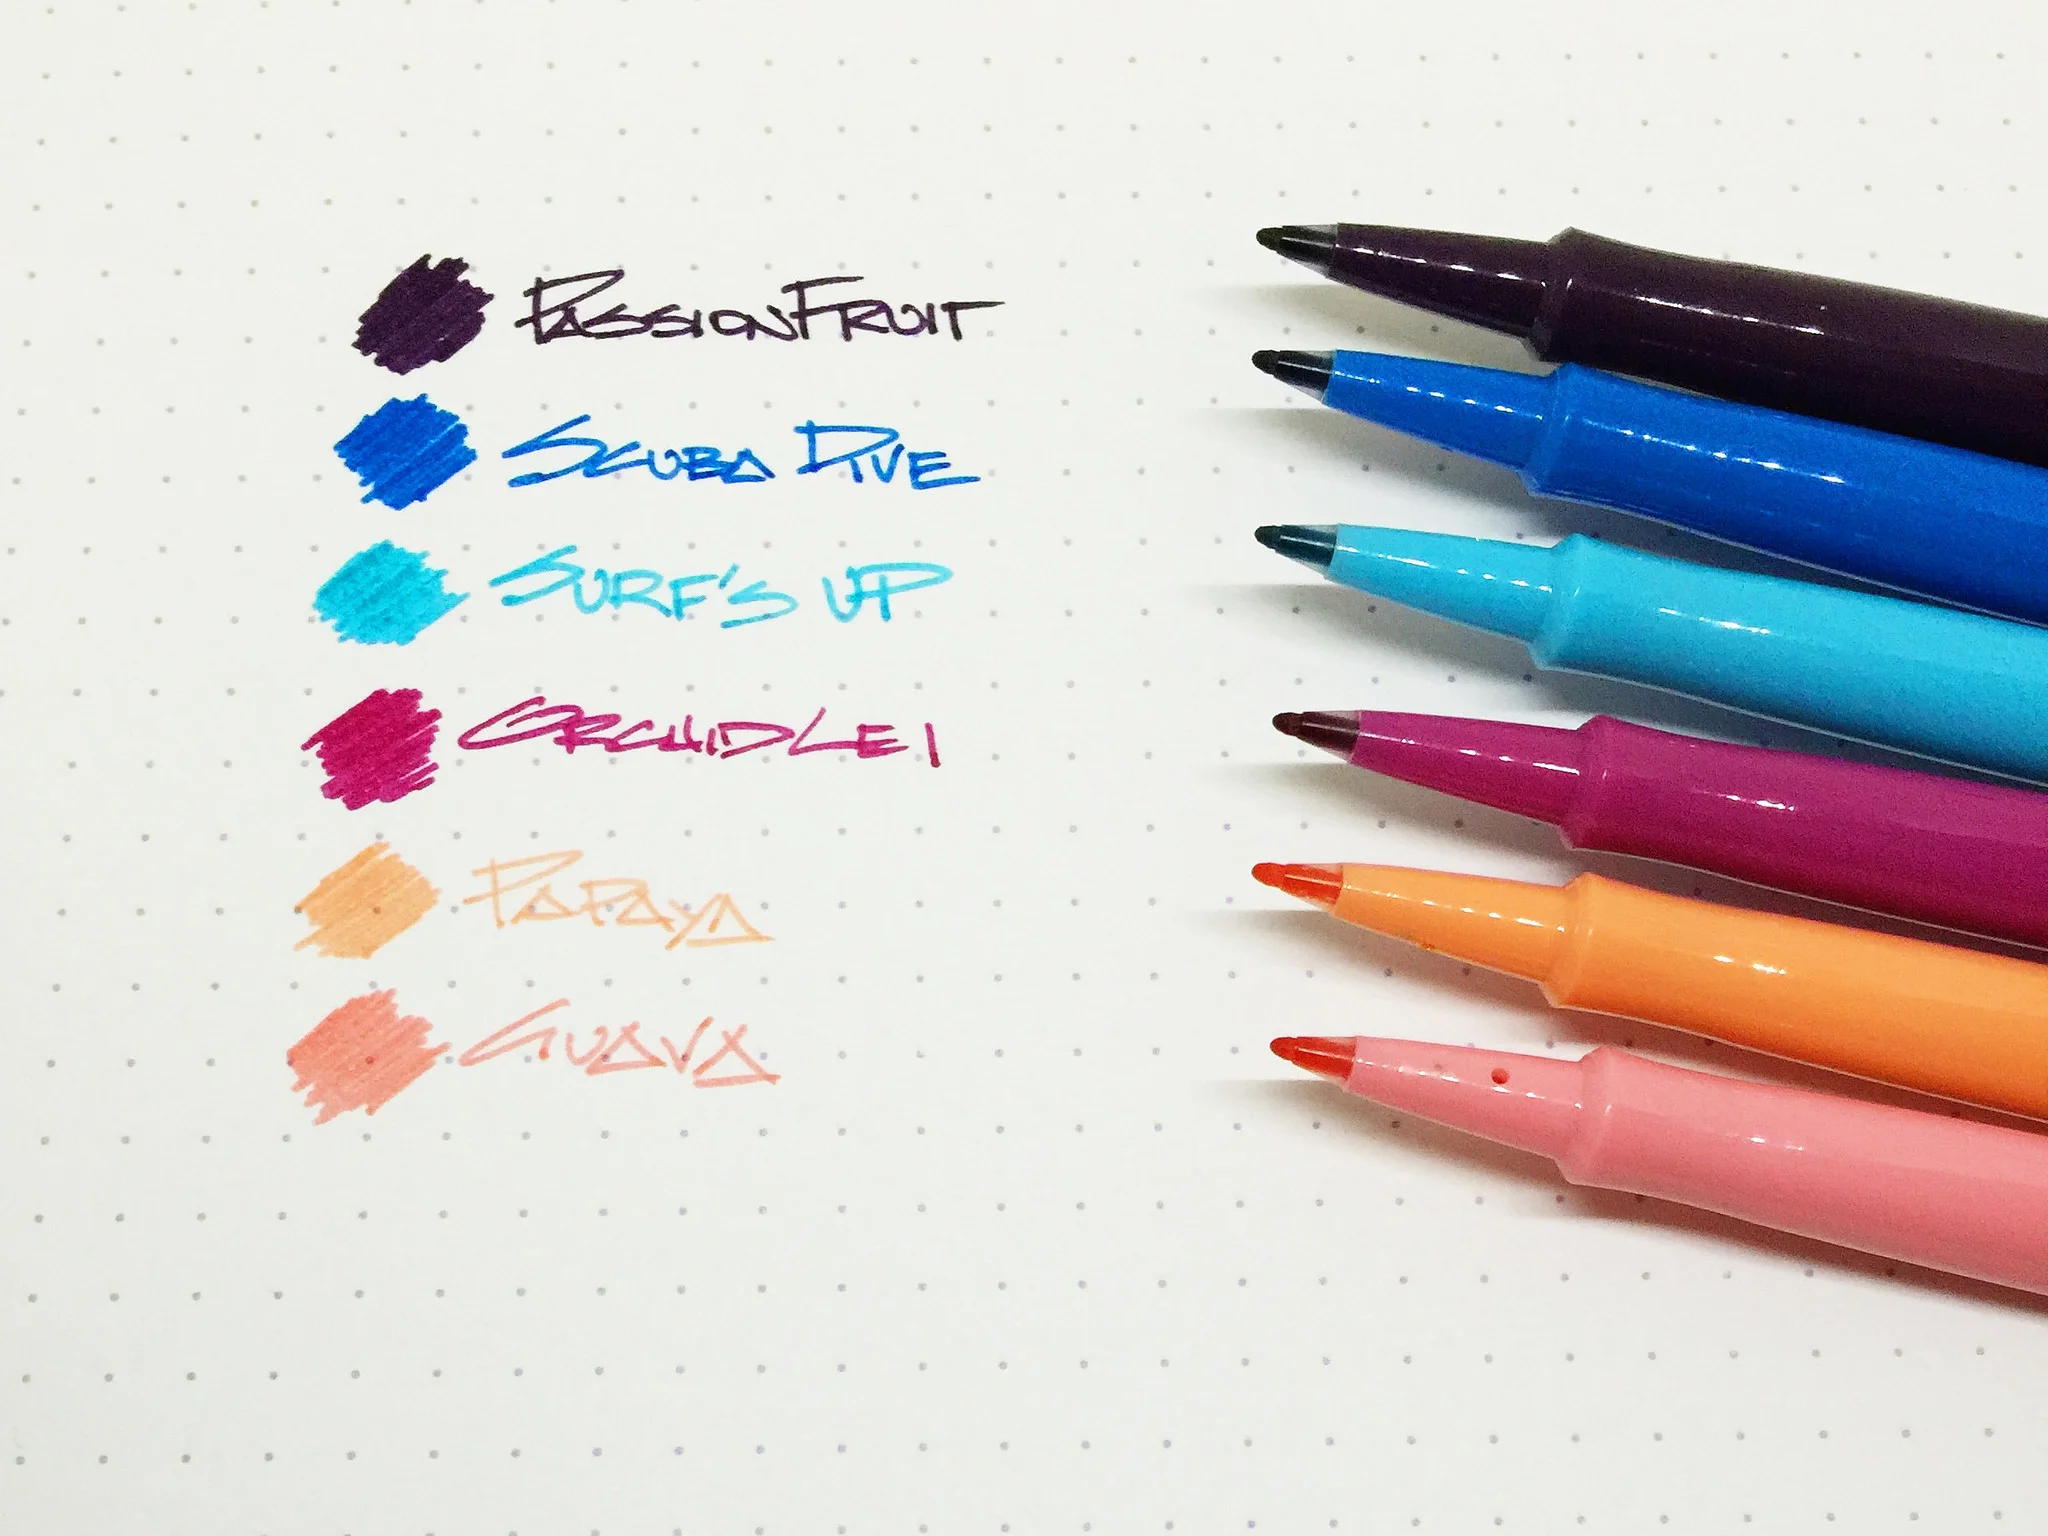 PassionFruit
Scuba Dive
Surf's Up
Orchid Lei
Papaya
Guava